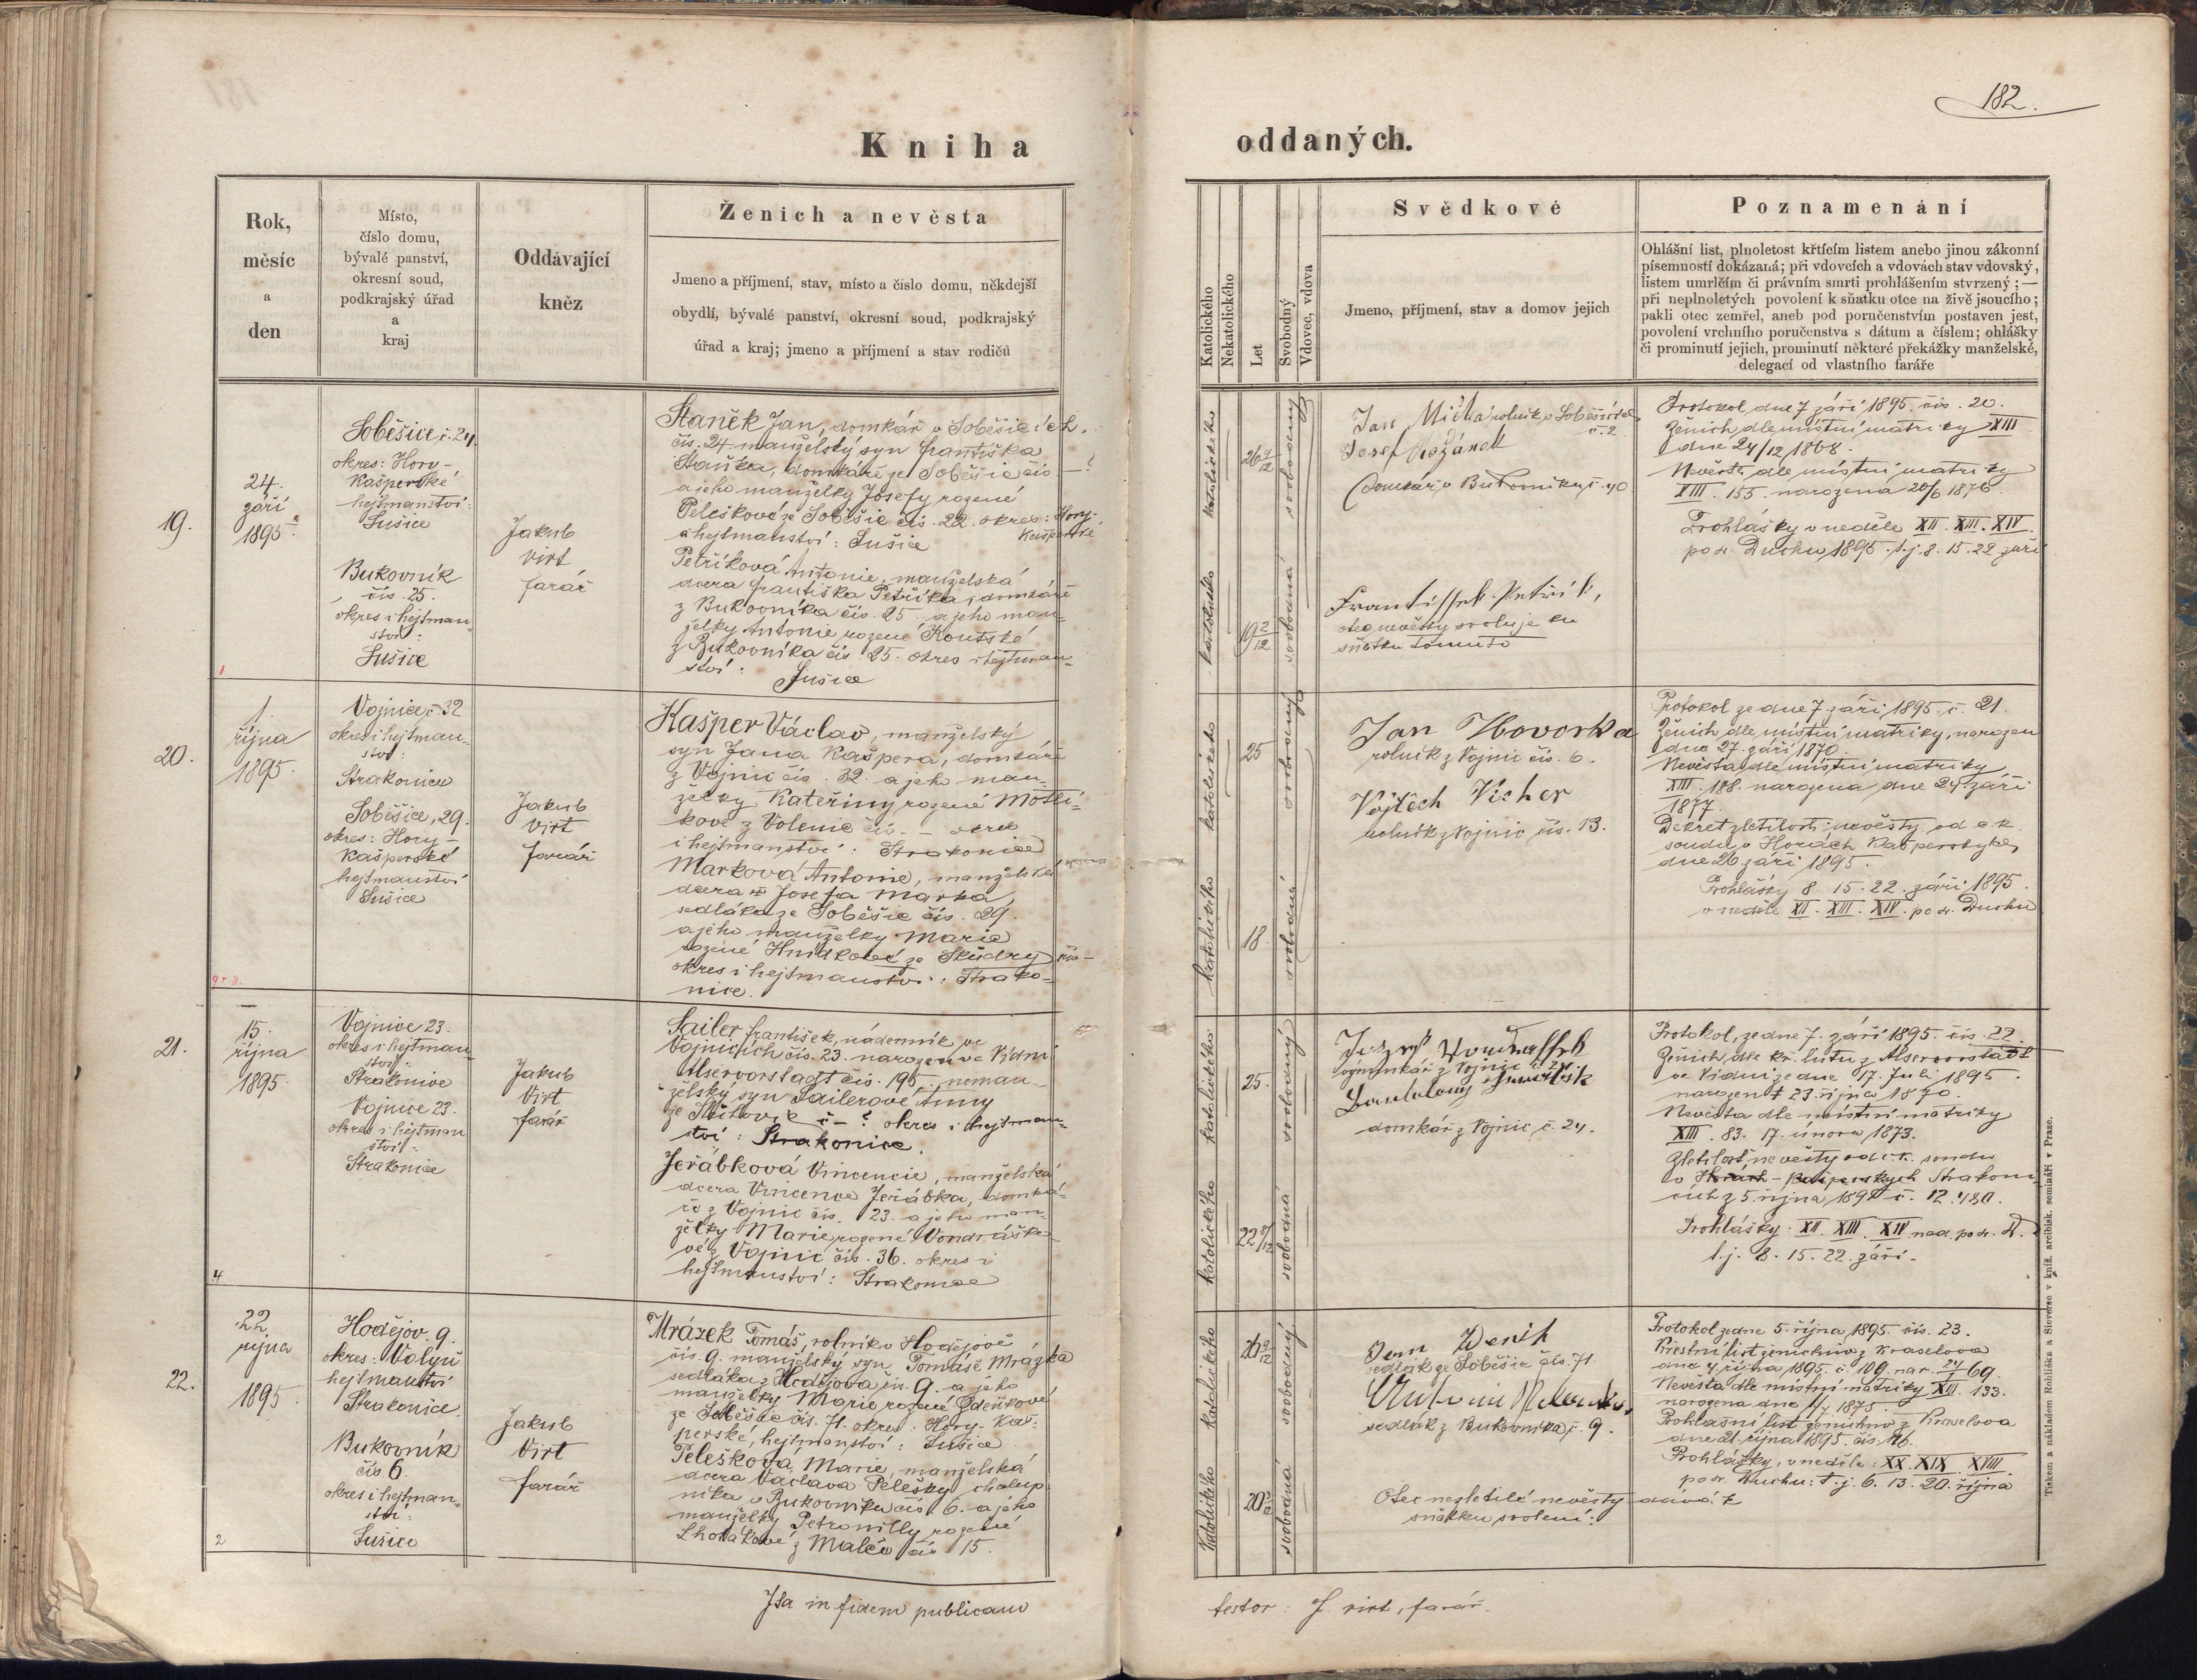 182.
Kniha oddaných.
Rok,
měsíc
a
den
Místo,
číslo domu,
bývalé panství,
okresní soud,
podkrajský úřad
a
kraj
Oddávající
kněz
Ženich a nevěsta
Jmeno a příjmení, stav, místo a číslo domu, někdejší
obydlí, bývalé panství, okresní soud, podkrajský
úřad a kraj; jmeno a příjmení a stav rodičů
Katolického
Nekatolického
Let
Svobodný
Vdovec, vdova
Svědkové
Jmeno, příjmení, stav a domov jejich
Poznamenání
Ohlášní list, plnoletost křtícím listem anebo jinou zákonní
písemností dokázaná; při vdovcích a vdovách stav vdovský,
listem umrlčím či právním smrti prohlášením stvrzený; —
při neplnoletých povolení k sňatku otce na živě jsoucího;
pakli otec zemřel, aneb pod poručenstvím postaven jest,
povolení vrchního poručenstva s dátum a číslem; ohlášky
či prominutí jejich, prominutí některé překážky manželské,
delegací od vlastního faráře
19.
24.
září
1895
Soběšice č. 24.
okres: Hory-
Kašperské
hejtmanství:
Sušice
Bukovník
čís. 25.
okres i hejtman-
ství:
Sušice
Jakub
Virt
farář
Staněk Jan, domkář v Soběšicích
čís. 24 manželský syn Františka
Staňka, domkáře ze Soběšic čís — ?
a jeho manželky Josefy rozené
Peleškové ze Soběšic čís. 22. okres: Hory-
Kašperské
a hejtmanství: Sušice
Petříková Antonie, manželská
dcera Františka Petříka, domkáře
z Bukovníka čís. 25 a jeho man-
želky Antonie rozené Routské
z Bukovníka čís. 25. okres i hejtman-
ství:
Sušice
katolického
26 9/12
svobodný
katolického
19 2/12
svobodná
Jan Míčka rolník v Soběšicích
č. 2
Josef
domkář v Bukovníku č. 40
Frantissek Petřík,
otec nevěsty svoluje ku
sňatku tomuto
Protokol dne 7 září 1895. čís. 20.
Ženich dle místní matriky XIII
dne 24/12 1868.
Nevěsta dle místní matriky
XIII. 155. narozena 20/6 1876.
Prohlášky v neděle XII. XIII. XIV.
po sv. Duchu 1895. t. j. 8. 15. 22 září
20.
1.
října
1895.
Vojnice č. 32
okres i hejtman-
ství:
Strakonice
Soběšice, 29.
okres: Hory-
Kašperské
hejtmanství
Sušice
Jakub
Virt
farář
Kašper Václav, manželský
syn Jana Kašpera, domkáře
z Vojnic čís. 32. a jeho man-
želky Kateřiny rozené Motlí-
kové z Volenic čís. — okres
i hejtmanství: Strakonice
Marková Antonie, manželská
dcera Josefa Marka,
sedláka ze Soběšic čís. 29.
a jeho manželky Marie
rozené Hnídkové ze Škůdry čís —
okres i hejtmanství: Strako-
nice.
katolického
25
svobodný
katolického
18.
svobodná
Jan Hovorka
rolník z Vojnic čís. 6.
Vojtěch Vicher
rolník z Vojnic čís. 13.
Protokol ze dne 7 září 1895. č. 21.
Ženich dle místní matriky, narozen
dne 27. září 1870.
Nevěsta dle místní matriky
XIII. 188. narozena dne 24. září
1877.
Dekret zletilosti nevěsty od c. k.
soudu v Horách Kašperských
dne 26 září 1895.
Prohlášky 8. 15. 22. září 1895.
v neděle XII. XIII. XIV. po sv. Duchu
21.
15.
října
1895.
Vojnice 23.
okres i hejtman-
ství:
Strakonice
Vojnice 23.
okres i hejtman
ství:
Strakonice
Jakub
Virt
farář
Sailer František, nádenník ve
Vojnicích čís. 23. narozen ve Vídni
Alservorstadt čís. 195. neman-
želský syn Sailerové Anny
ze č — ? okres i hejtman-
ství: Strakonice.
Jeřábková Vincencie, manželská
dcera Vincence Jeřábka, domká-
ře z Vojnic čís. 23. a jeho man-
želky Marie rozené Vondráško-
vé z Vojnic čís. 36. okres i
hejtmanství: Strakonice
4
katolického
25.
svobodný
katolického
22 8/12
svobodná
Jozef
z Vojnic č.
domkář z Vojnic č. 24.
Protokol, ze dne 7. září 1895. čís. 22
Ženich, dle kř. listu z Alservorstadt
ve Vídni ze dne 17. Juli 1895.
narozen 23. říjnem 1870.
Nevěsta dle místní matriky
XIII. 83. 17. února 1873.
Zletilost nevěsty od c. k. soudu
v Horách-Kašperských Strakoni
cích z 5. října 1895 č. 12.480.
Prohlášky. XII. XIII. XIV. ned. po sv. D.
t. j. 8. 15. 22. září.
22.
22
října
1895.
Hodějov. 9.
okres: Volyň
hejtmanství
Strakonice.
Bukovník
čís 6.
okres i hejtman-
ství:
Sušice
2
Jakub
Virt
farář
Mrázek Tomáš, rolník v Hodějově
čís. 9. manželský syn Tomáše Mrázka
sedláka z Hodějova čís. 9. a jeho
manželky Marie rozené Zdeňkové
ze Soběšic čís. 71. okres: Hory-Kaš-
perské, hejtmanství: Sušice
Pelešková Marie, manželská
dcera Václava Pelešky chalup-
níka v Bukovníku čís. 6. a jeho
manželky Petronilly rozené
Lhotákové z Malče čís. 15.
katolického
26 9/12
svobodný
katolického
20 3/12
svobodná
Jenn Zdenik
sedlák ze Soběšic čís. 71
sedlák z Bukovníka, č. 9.
Otec nezletilé nevěsty dává k
sňatku svolení:
Protokol ze dne 5. října 1895. čís. 23.
Křestní list ženichův z Kraselova
dne 4 října 1895. č. 109. nar. 24/1 69.
Nevěsta dle místní matriky XIII. 133.
narozena dne 4/7 1875.
Prohlašní list ženichův z Kraselova
dne 21. října 1895. čís. 116.
Prohlášky, v neděle: XX. XIX. XVIII.
po sv. Duchu: t. j. 6. 13. 20. října
Ita in fidem publicam
testor: J. Virt, farář.
Tiskem a nákladem Rohlíčka a Sieverse v kníž. arcibisk. semináři v Praze.